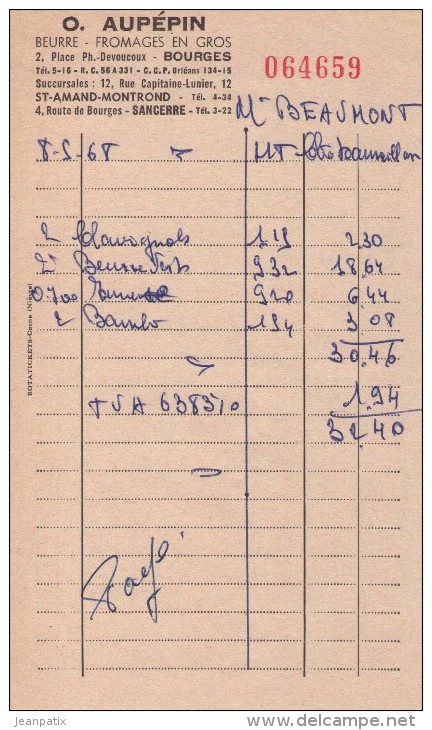 O. AUPÉPIN
BEURRE - FROMAGES EN GROS
2, Place Ph.-Devoucoux - BOURGES
Tél. 5-16 - R.C. 56 A 331 - C.C.P. Orléans 134-15
064659
Succursales : 12, Rue Capitaine-Lunier, 12
ST-AMAND-MONTROND - Tél. 4-34
4, Route de Bourges - SANCERRE - Tél. 3-22
Mr BEAUMONT
8-5-68
2 Chavignols 115 2.30
2 Beurre Verts 932 18.64
0.700 920 6.44
2 Bambo 154 3.08
30.46
TVA 638310 1.94
32.40
Payé
ROTATICKETS-Cosne (Nièvre)
jeanpatix
delcampe.net